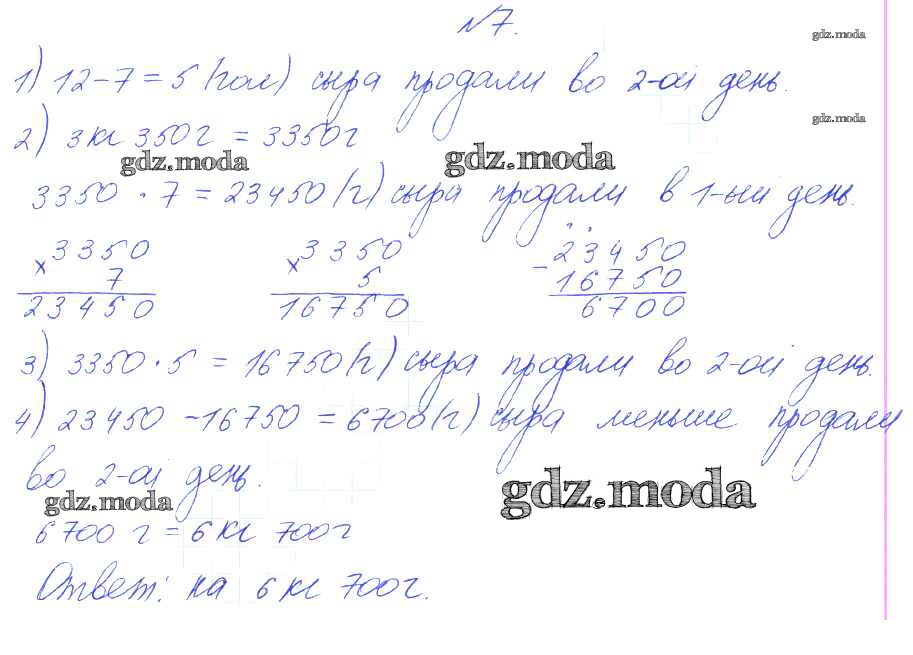 №7.
gdz.moda
1) 12-7=5 (гол) сыра продали во 2-ой день.
gdz.moda
2) 3кг 350г = 3350г
gdz.moda gdz.moda
3350 · 7 = 23450 (г) сыра продали в 1-ый день.
×3350 ×3350 -23450
7 5 16750
23450 16750 6700
3) 3350·5 = 16750(г) сыра продали во 2-ой день.
4) 23450 -16750 = 6700(г) сыра меньше продали
во 2-ой день.
gdz.moda gdz.moda
6700 г = 6 кг 700г
Ответ: на 6 кг 700г.